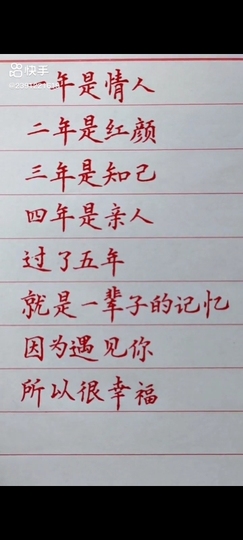 快手
年是情人
二年是红颜
三年是知己
四年是亲人
过了五年
就是一辈子的记忆
因为遇见你
所以很幸福